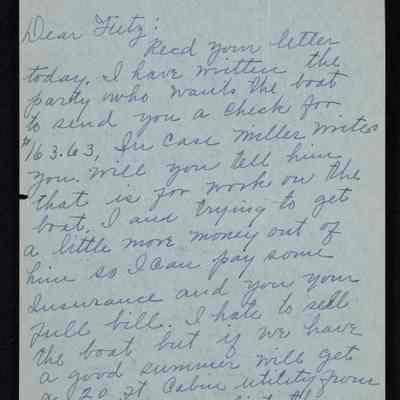 Dear Fritz:
Recd your letter
today. I have written the
party who wants the boat
to send you a check for
$163.63, In case Miller writes
you. will you tell him
that is for work on the
boat. I and trying to get
a little more money out of
him so I can pay some
Insurance and you your
full bill. I hate to sell
the boat but if we have
a good summer will get
a 20 ft Cabin utility from